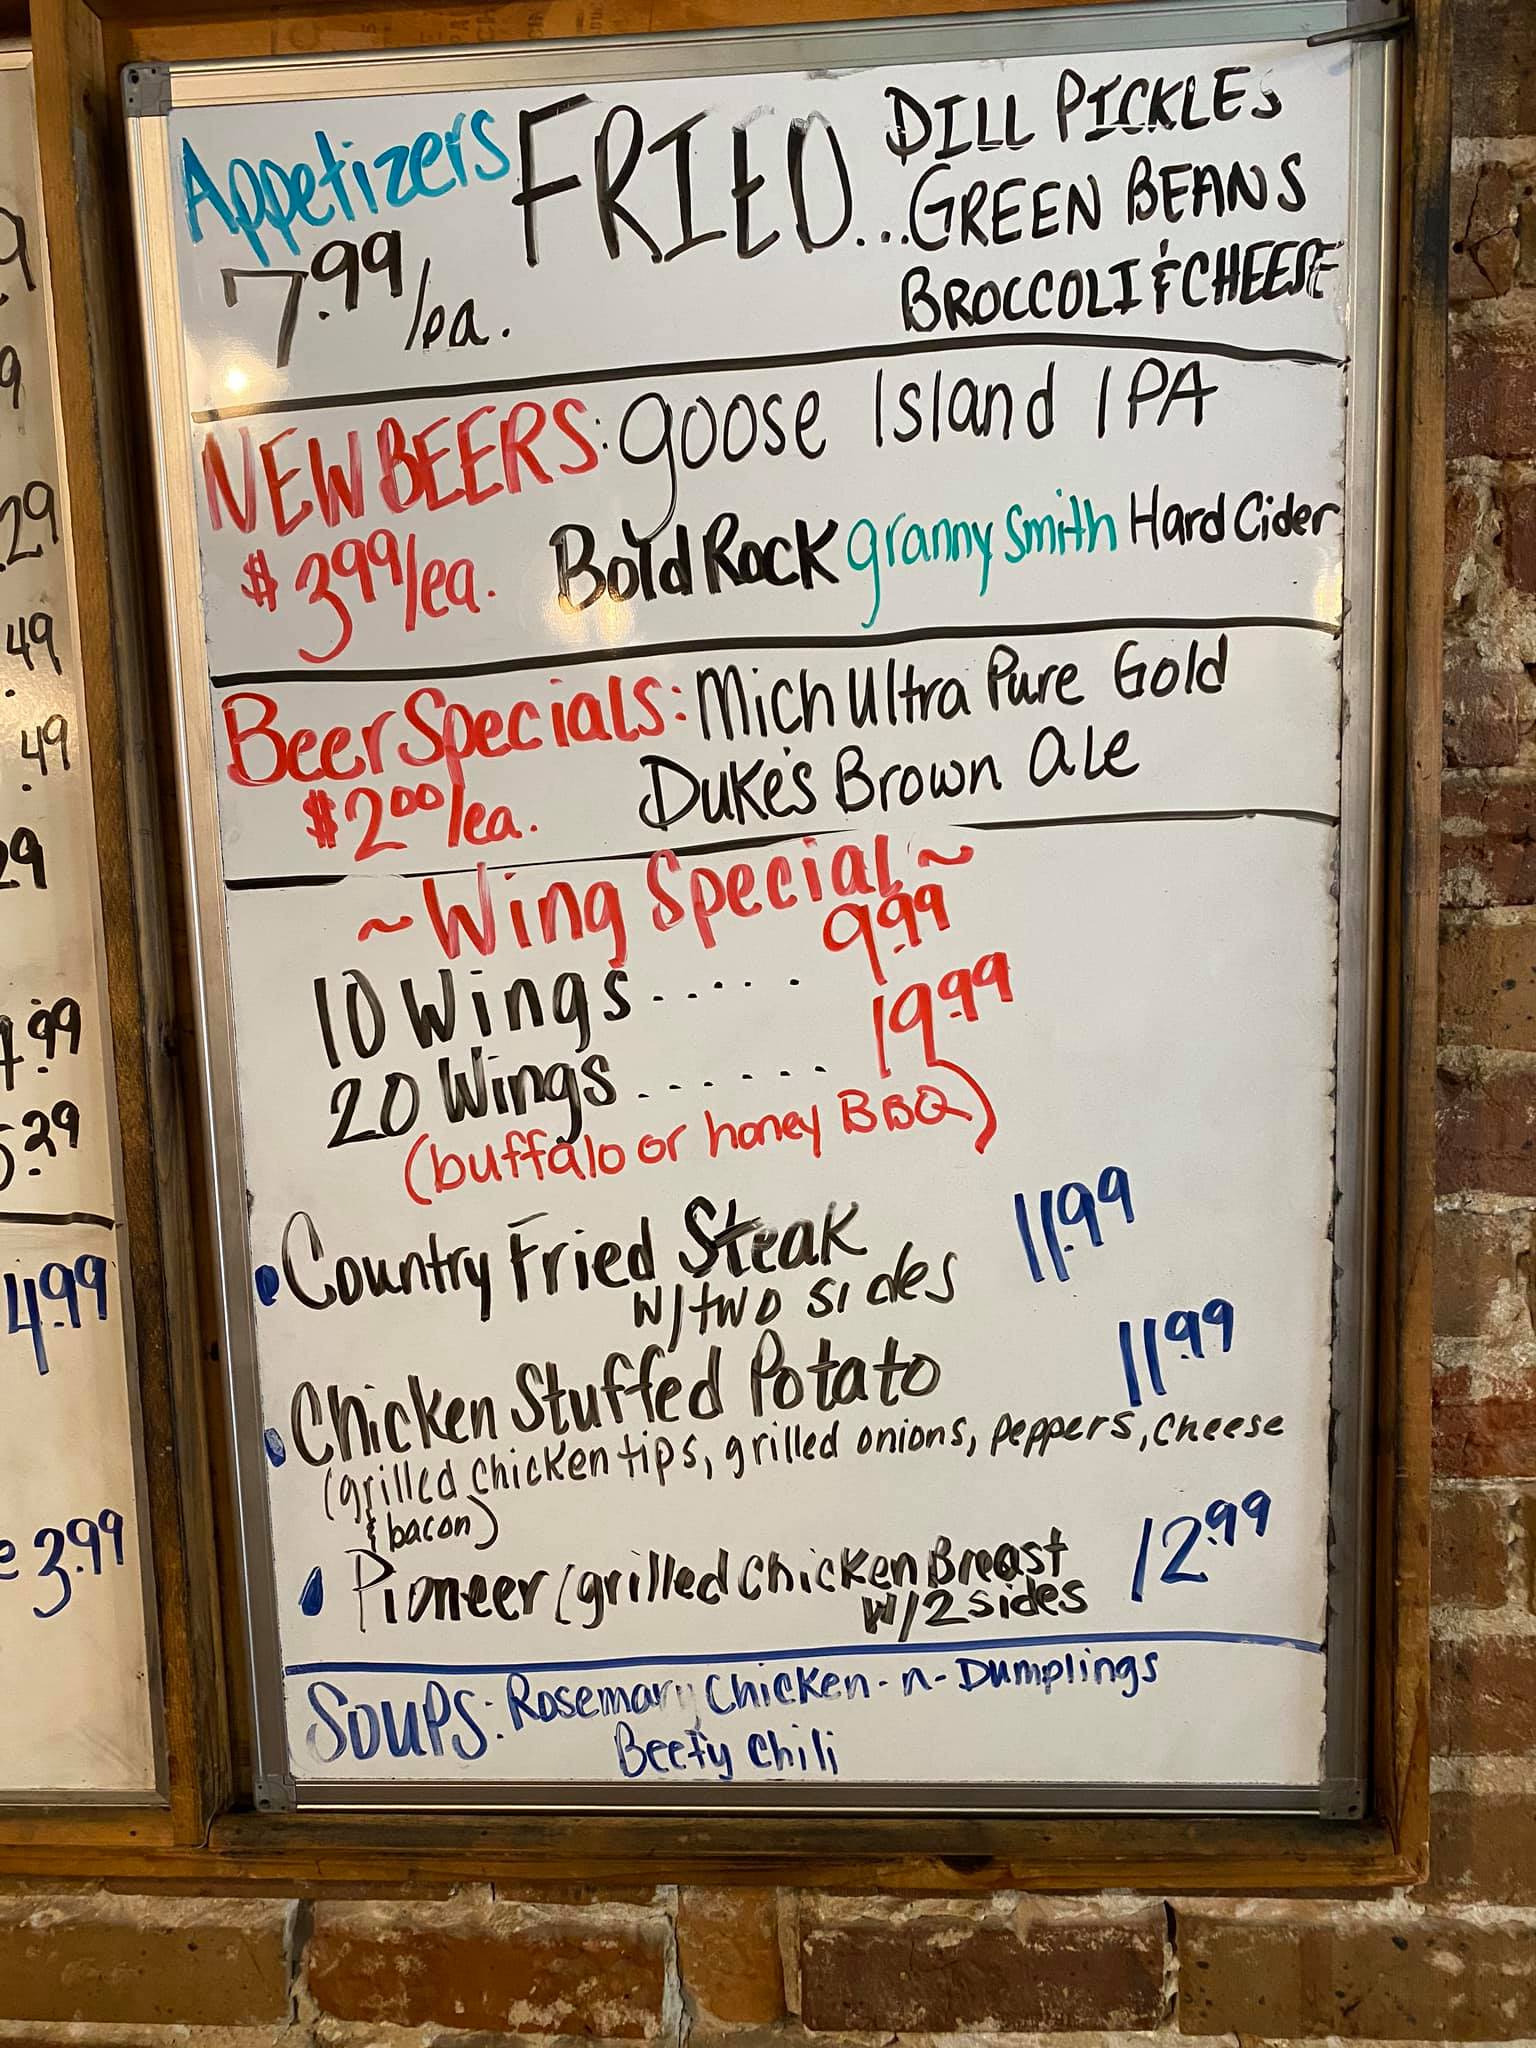 Appetizers FRIED... DILL PICKLES
7.99/ea. GREEN BEANS
BROCCOLI & CHEESE
NEW BEERS: Goose Island IPA
$3.99/ea. Bold Rock granny Smith Hard Cider
Beer Specials: Mich Ultra Pure Gold
$2.00/ea. Duke's Brown Ale
~Wing Special~
10 Wings..... 9.99
20 Wings...... 19.99
(buffalo or honey BBQ)
• Country Fried Steak 11.99
w/ two sides
• Chicken Stuffed Potato 11.99
(grilled chicken tips, grilled onions, peppers, cheese
& bacon)
• Pioneer (grilled Chicken Breast 12.99
w/ 2 sides
Soups: Rosemary Chicken-n-Dumplings
Beefy Chili
29
.49
.49
29
.99
5.29
4.99
e 3.99